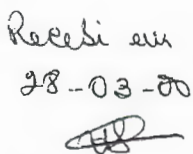 Recebi em
28-03-00